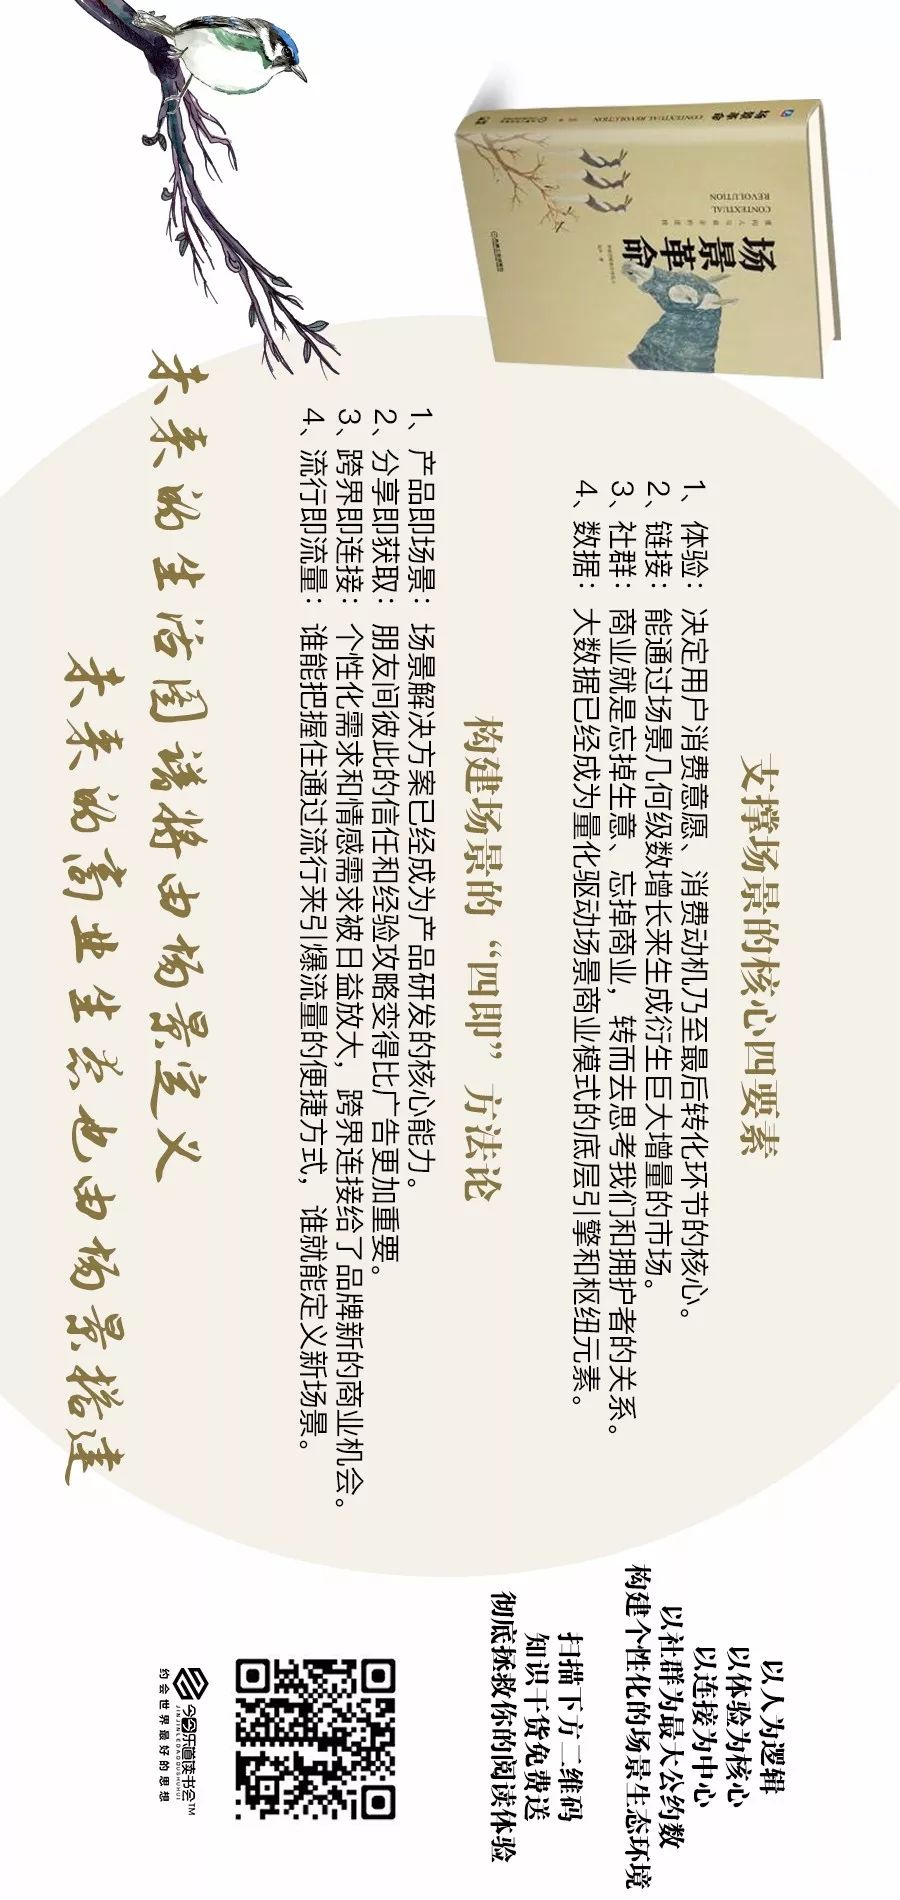 场景革命
CONTEXTUAL REVOLUTION
场景革命
重构人与商业的连接
CONTEXTUAL
REVOLUTION
支撑场景的核心四要素
1、体验：决定用户消费意愿、消费动机乃至最后转化环节的核心。
2、链接：能通过场景几何级数增长来生成衍生巨大增量的市场。
3、社群：商业就是忘掉生意、忘掉商业，转而去思考我们和拥护者的关系。
4、数据：大数据已经成为量化驱动场景商业模式的底层引擎和枢纽元素。
构建场景的“四即”方法论
1、产品即场景：场景解决方案已经成为产品研发的核心能力。
2、分享即获取：朋友间彼此的信任和经验攻略变得比广告更加重要。
3、跨界即连接：个性化需求和情感需求被日益放大，跨界连接给了品牌新的商业机会。
4、流行即流量：谁能把握住通过流行来引爆流量的便捷方式，谁就能定义新场景。
未来的生活图谱将由场景定义
未来的商业生态也由场景搭建
以人为逻辑
以体验为核心
以连接为中心
以社群为最大公约数
构建个性化的场景生态环境
扫描下方二维码
知识干货免费送
彻底拯救你的阅读体验
今今乐道读书会™
JINJINLEDAODUSHUHUI
约会世界最好的思想